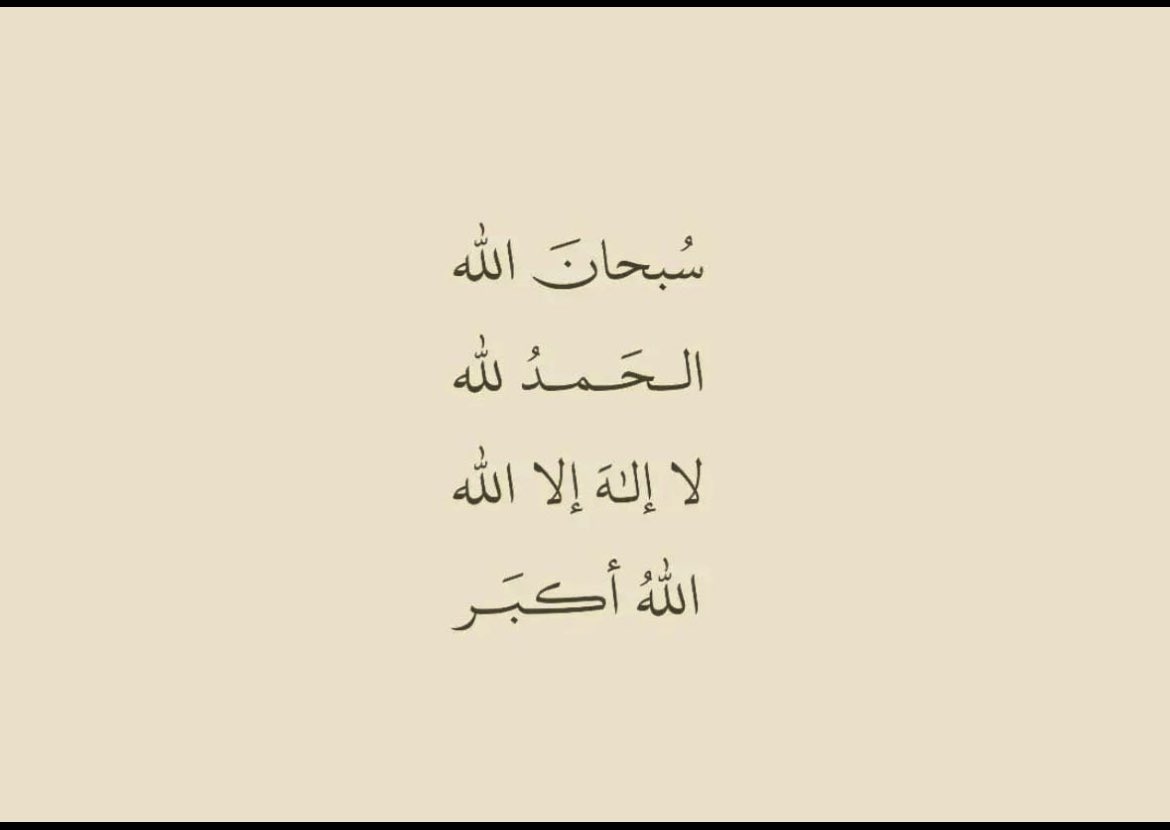 سُبحانَ الله
الـحَـمـدُ لله
لا إلـٰهَ إلا الله
اللهُ أكـبَـر